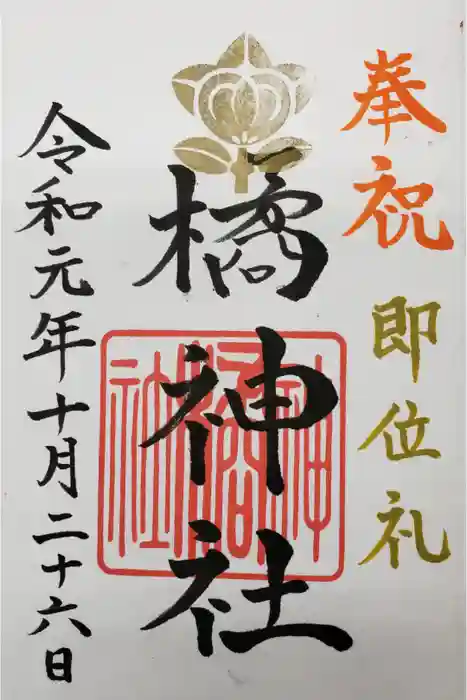 奉祝 即位礼
橘神社
令和元年十月二十六日